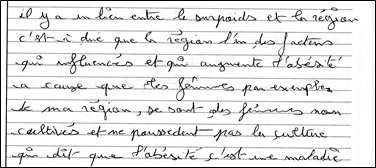 il y a un lien entre le surpoids et la région
c'est à dire que la région l'un des facteurs
qui influencés et qui augmente l'obésité
a cause que des femmes par exemple
de ma région, se sont des femmes non
cultivés et ne poussedent pas la culture
qui dit que l'obésité c'est une maladie